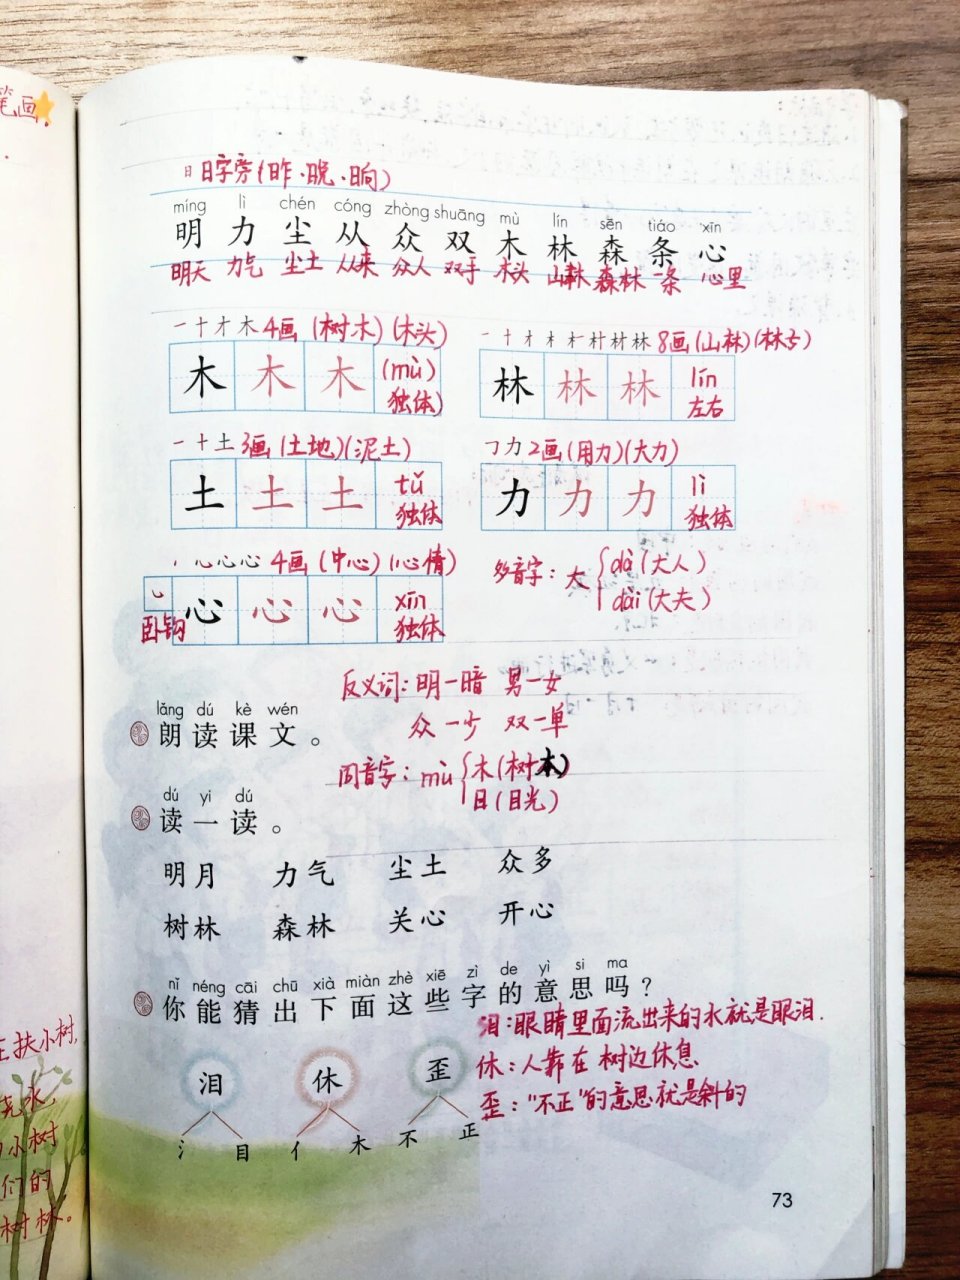 笔画
日 日字旁(昨、晚、晌)
míng lì chén cóng zhòng shuāng mù lín sēn tiáo xīn
明 力 尘 从 众 双 木 林 森 条 心
明天 力气 尘土 从来 众人 双手 木头 山林 森林 一条 心里
一 十 才 木 4画 (树木) (木头)
木 木 木 (mù) 独体)
一 十 才 木 林 8画 (山林)
林 林 林 lín 左右
一 十 土 3画 (土地) (泥土)
土 土 土 tǔ 独体
㇆ 力 2画 (用力) (大力)
力 力 力 lì 独体
心 4画 (中心) (心情)
卧钩 心 心 心 xīn 独体
多音字: 大 { dà (大人)
dài (大夫)
反义词: 明一暗 男一女
众一少 双一单
lǎng dú kè wén
朗读课文。
同音字: mù { 木 (树木)
目 (目光)
dú yi dú
读一读。
明月 力气 尘土 众多
树林 森林 关心 开心
nǐ néng cāi chū xià miàn zhè xiē zì de yì si ma
你能猜出下面这些字的意思吗?
泪:眼睛里面流出来的水就是眼泪.
休:人靠在树边休息
歪:"不正"的意思就是斜的
泪 休 歪
氵 目 亻 木 不 正
扶小树,
小树
们的
树林。
73